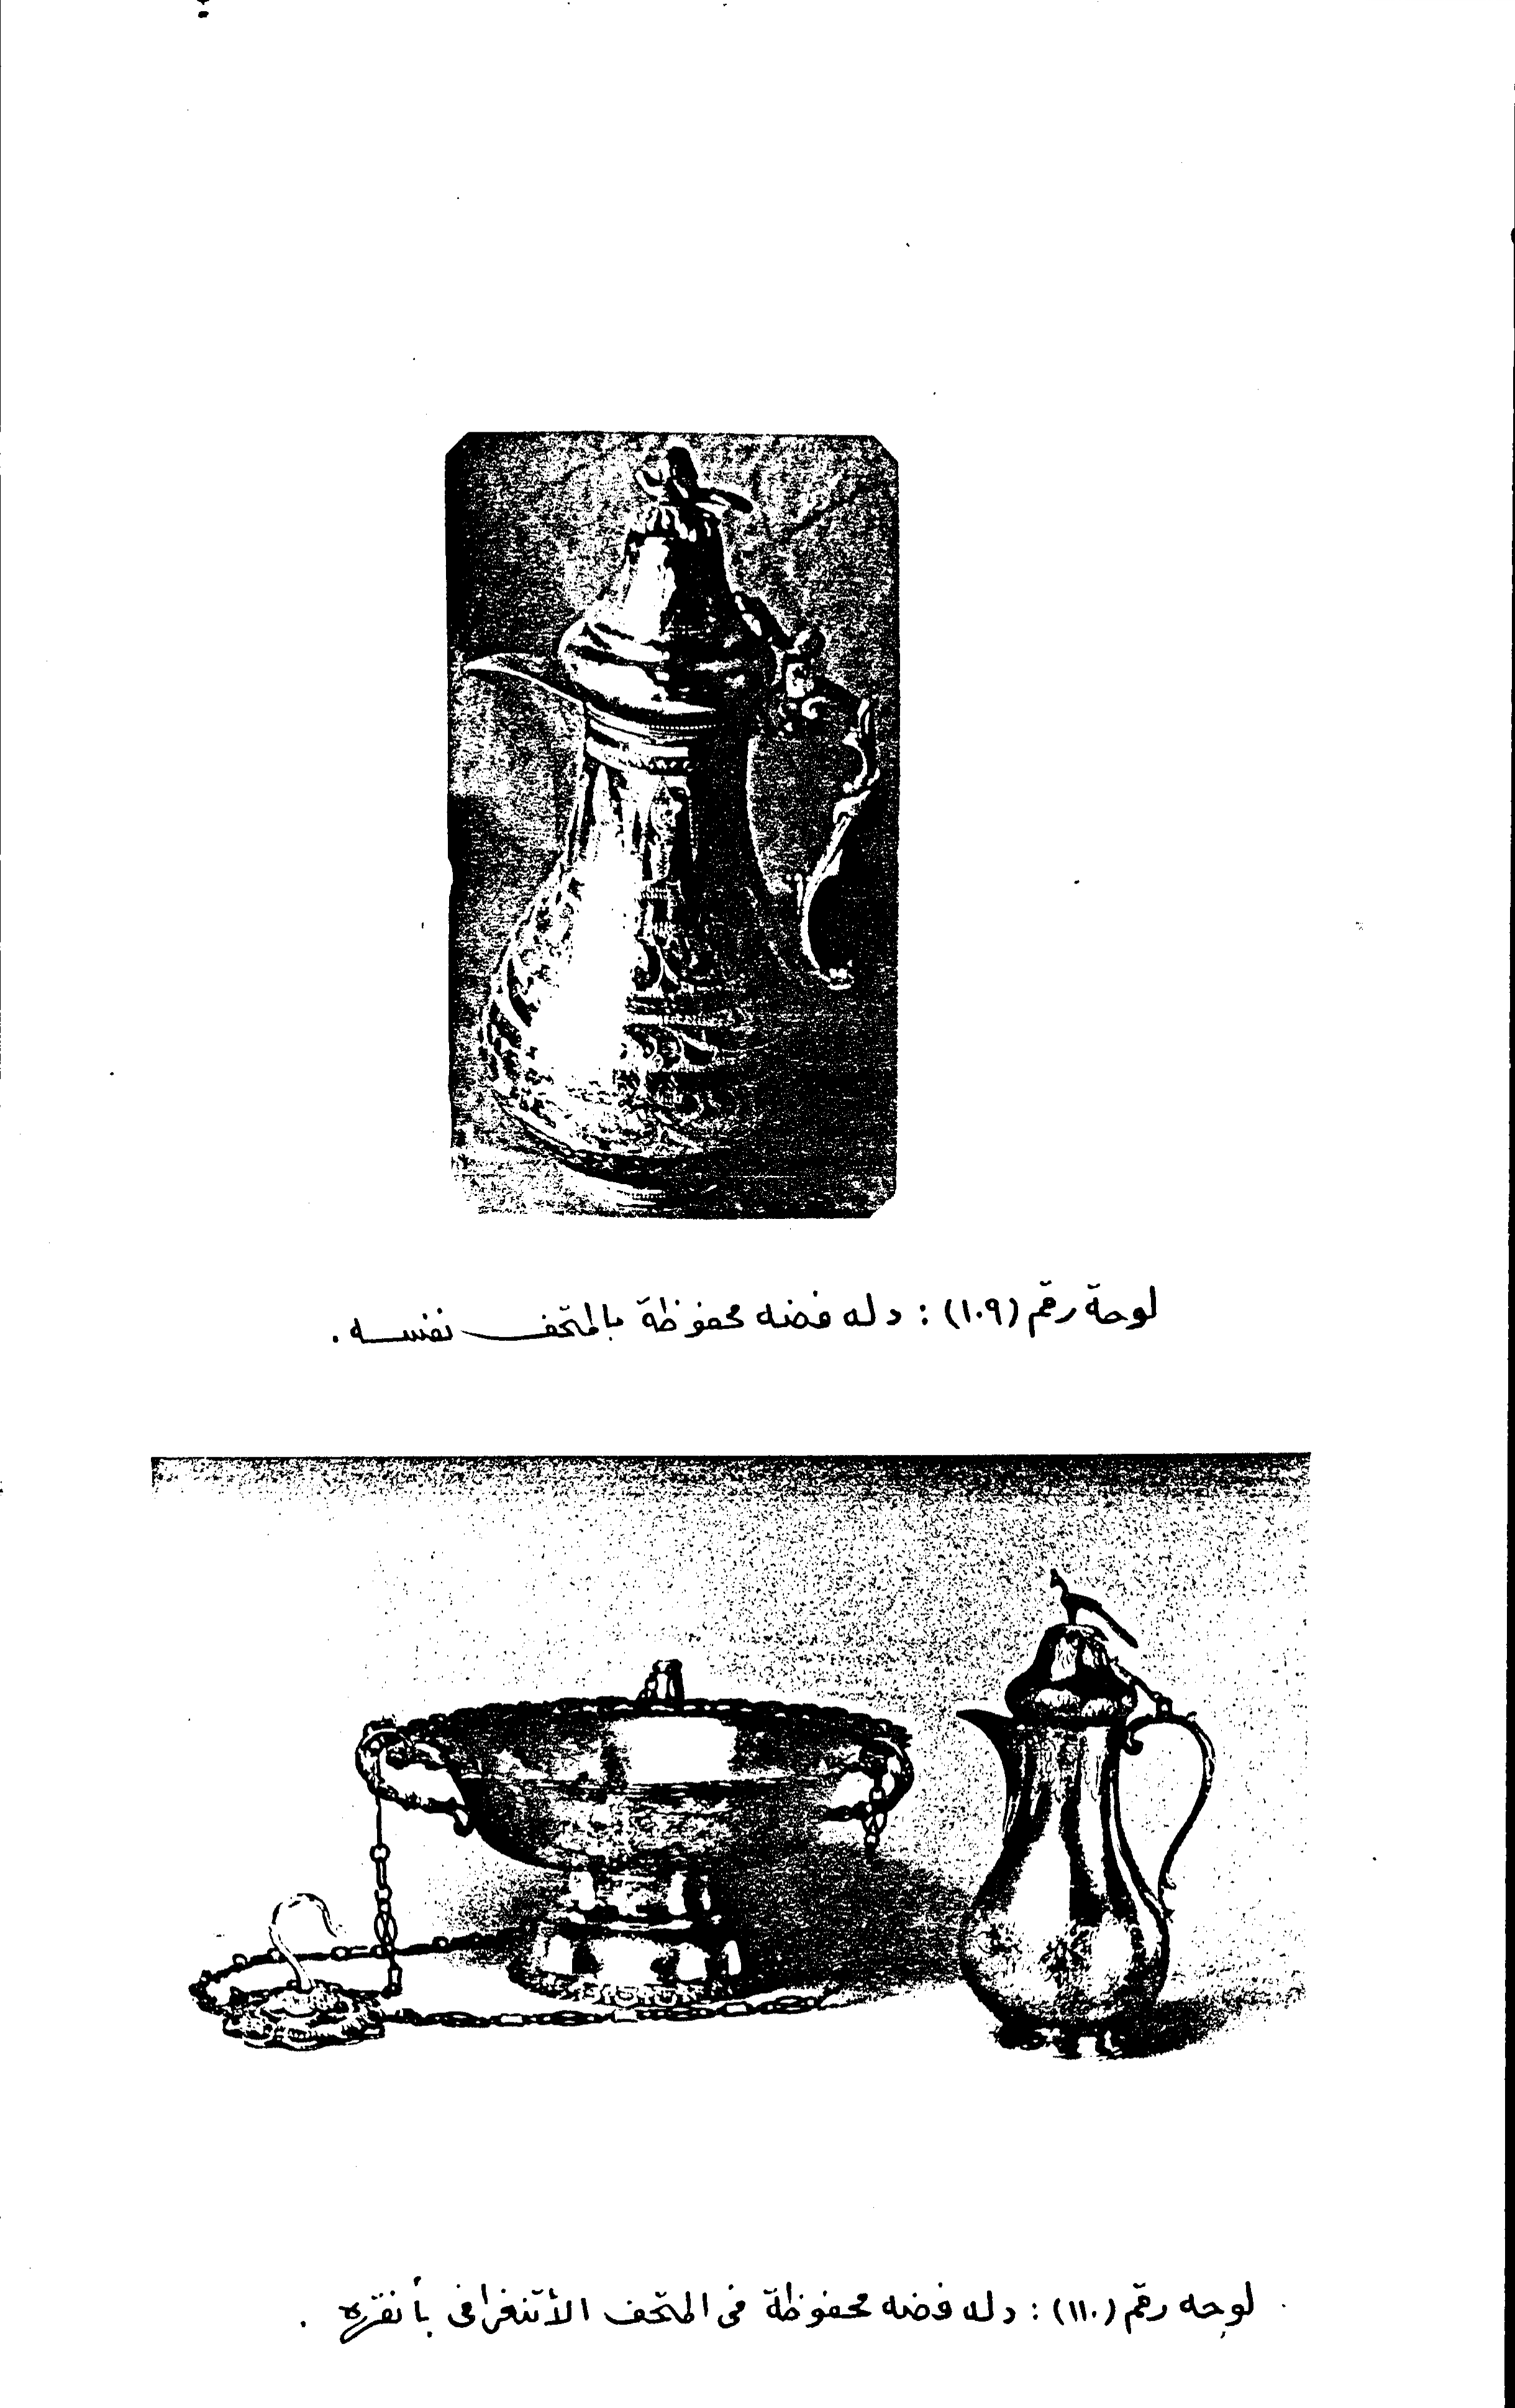 لوحة رقم (١٠٩) : دله فضه محفوظة بالمتحف نفسه .
لوحه رقم (١١٠) : دله فضه محفوظة في المتحف الأتنغرافى بأنقره .